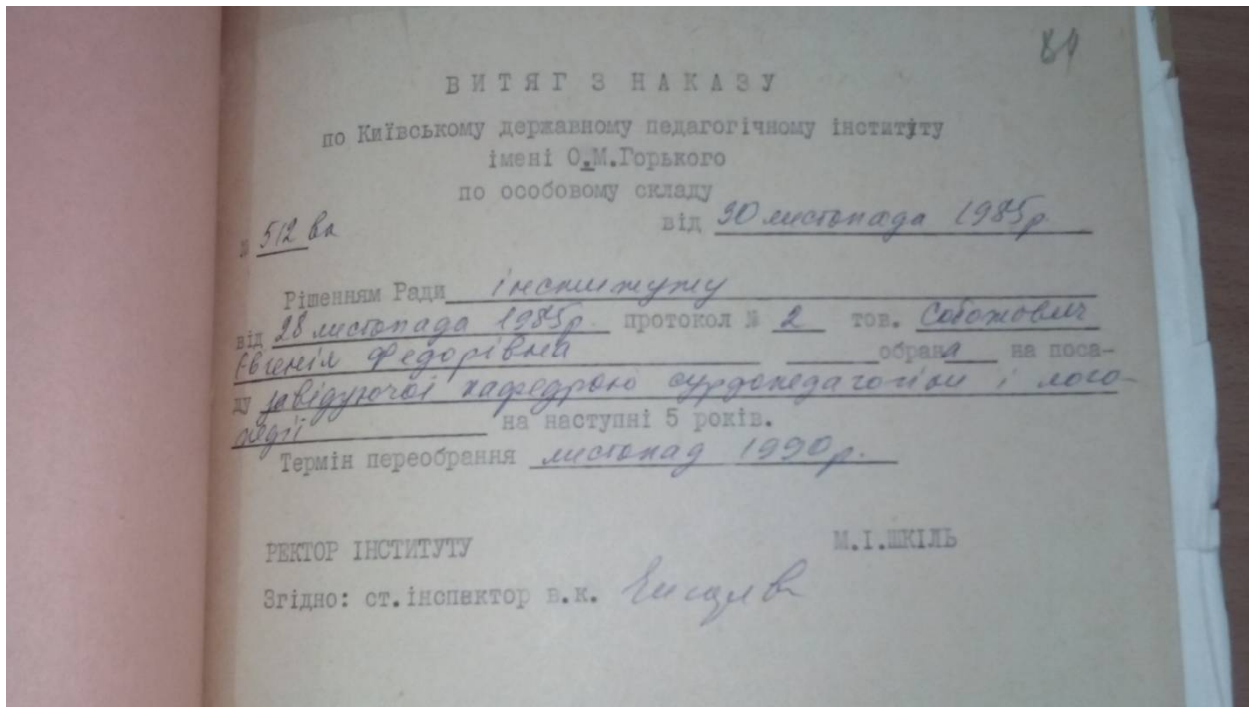 81
ВИТЯГ З НАКАЗУ
по Київському державному педагогічному інституту
імені О.М.Горького
по особовому складу
№ 512 вк від 30 листопада 1985р.
Рішенням Ради інституту
від 28 листопада 1985р. протокол № 2 тов. Соботович
Євгенія Федорівна обрана на поса-
ду завідуючої кафедрою сурдопедагогіки і лого-
педії на наступні 5 років.
Термін переобрання листопад 1990р.
РЕКТОР ІНСТИТУТУ М.І.ШКІЛЬ
Згідно: ст.інспектор в.к.